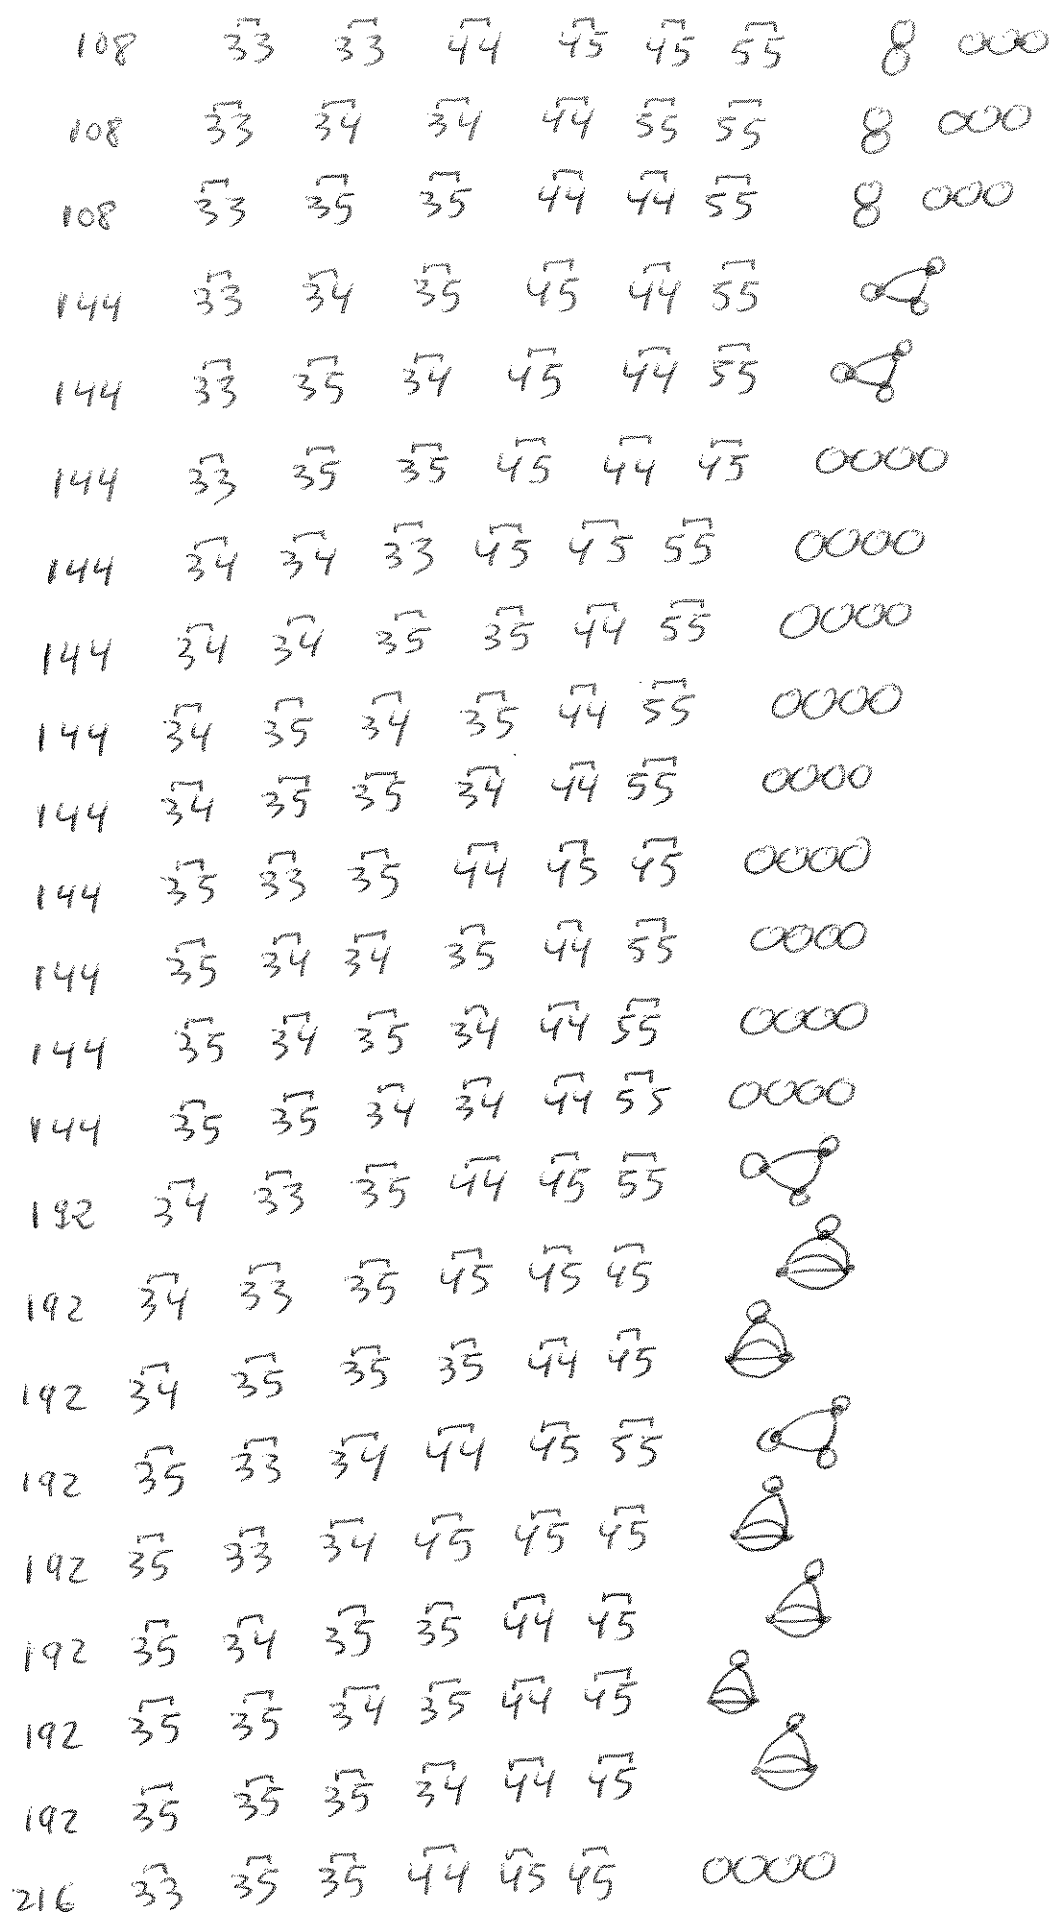 108 33 33 44 45 45 55
108 33 34 34 44 55 55
108 33 35 35 44 44 55
144 33 34 35 45 44 55
144 33 35 34 45 44 55
144 33 35 35 45 44 45
144 34 34 33 45 45 55
144 34 34 35 35 44 55
144 34 35 34 35 44 55
144 34 35 35 34 44 55
144 35 33 35 44 45 45
144 35 34 34 35 44 55
144 35 34 35 34 44 55
144 35 35 34 34 44 55
192 34 33 35 44 45 55
192 34 33 35 45 45 45
192 34 35 35 35 44 45
192 35 33 34 44 45 55
192 35 33 34 45 45 45
192 35 34 35 35 44 45
192 35 35 34 35 44 45
192 35 35 35 34 44 45
216 33 35 35 44 45 45